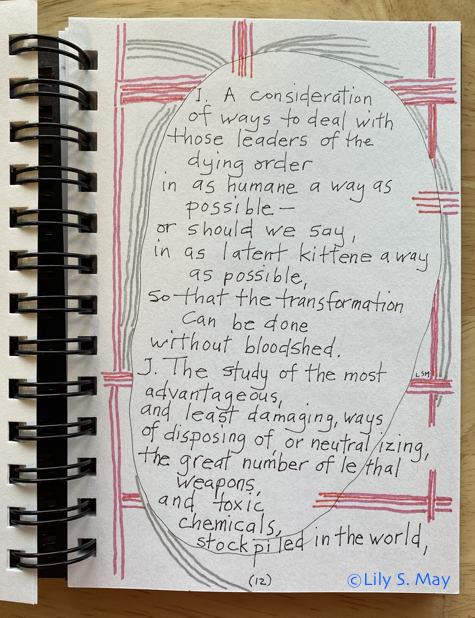 I. A consideration
of ways to deal with
those leaders of the
dying order
in as humane a way as
possible—
or should we say,
in as latent kittene a way
as possible,
so that the transformation
can be done
without bloodshed.
J. The study of the most
advantageous,
and least damaging, ways
of disposing of, or neutralizing,
the great number of lethal
weapons,
and toxic
chemicals,
stockpiled in the world,
LSM
(12)
©Lily S. May